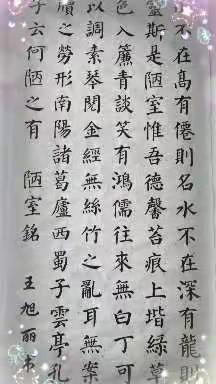 不在高有僊則名水不在深有龍則
靈斯是陋室惟吾德馨苔痕上堦綠草
色入簾青談笑有鴻儒往來無白丁可
以調素琴閱金經無絲竹之亂耳無案
牘之勞形南陽諸葛廬西蜀子雲亭孔
子云何陋之有 陋室銘 王旭丽书